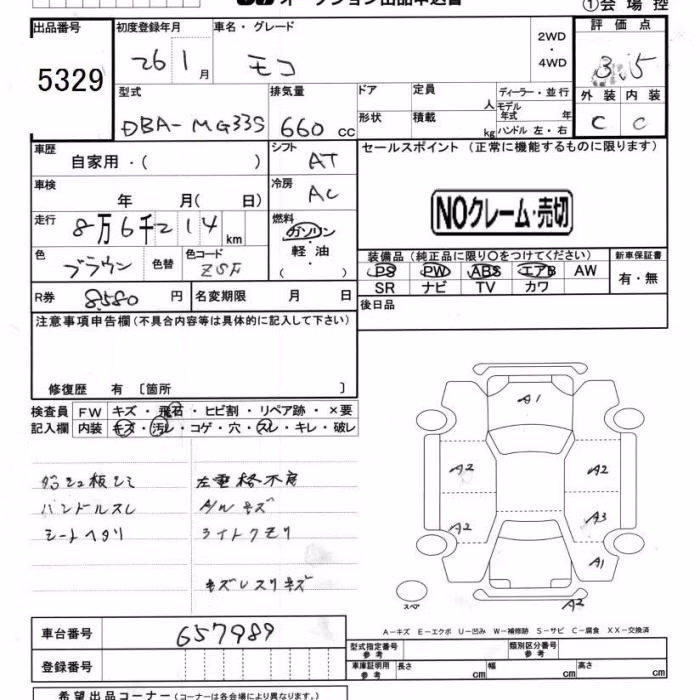 オークション出品申込書
①会場控
出品番号 5329
初度登録年月 26 1 月
車名・グレード モコ
2WD・4WD
評価点 3.5
外装 C 内装 C
型式 DBA-MG33S
排気量 660 cc
ドア 形状
定員 人
積載 kg
ディーラー・並行
モデル年式 年
ハンドル 左・右
車歴 自家用・( )
シフト AT
セールスポイント (正常に機能するものに限ります)
車検 年 月( 日)
冷房 AC
NOクレーム・売切
走行 8万6千214 km
燃料 ガソリン・軽油・( )
色 ブラウン 色替
色コード
装備品 (純正品に限り○をつけてください)
新車保証書 有・無
PS PW ABS エアB AW
SR ナビ TV カワ
R券 8580 円
名変期限 月 日
後日品
注意事項申告欄(不具合内容等は具体的に記入して下さい)
修復歴 有 〔箇所 〕
検査員記入欄
FW キズ・飛石・ヒビ割・リペア跡・×要
内装 キズ・汚レ・コゲ・穴・スレ・キレ・破レ
ハンドルスレ A/Wキズ
シートヘタリ ライトクモリ
キズレスリキズ
A1
A2 A2
A2 A3
A1
スペア A2
A-キズ E-エクボ U-凹み W-補修跡 S-サビ C-腐食 XX-交換済
車台番号 657989
登録番号
型式指定番号 参考
類別区分番号 参考
車庫証明用 参考 長さ cm 幅 cm 高さ cm
希望出品コーナー (コーナーは各会場により異なります。)